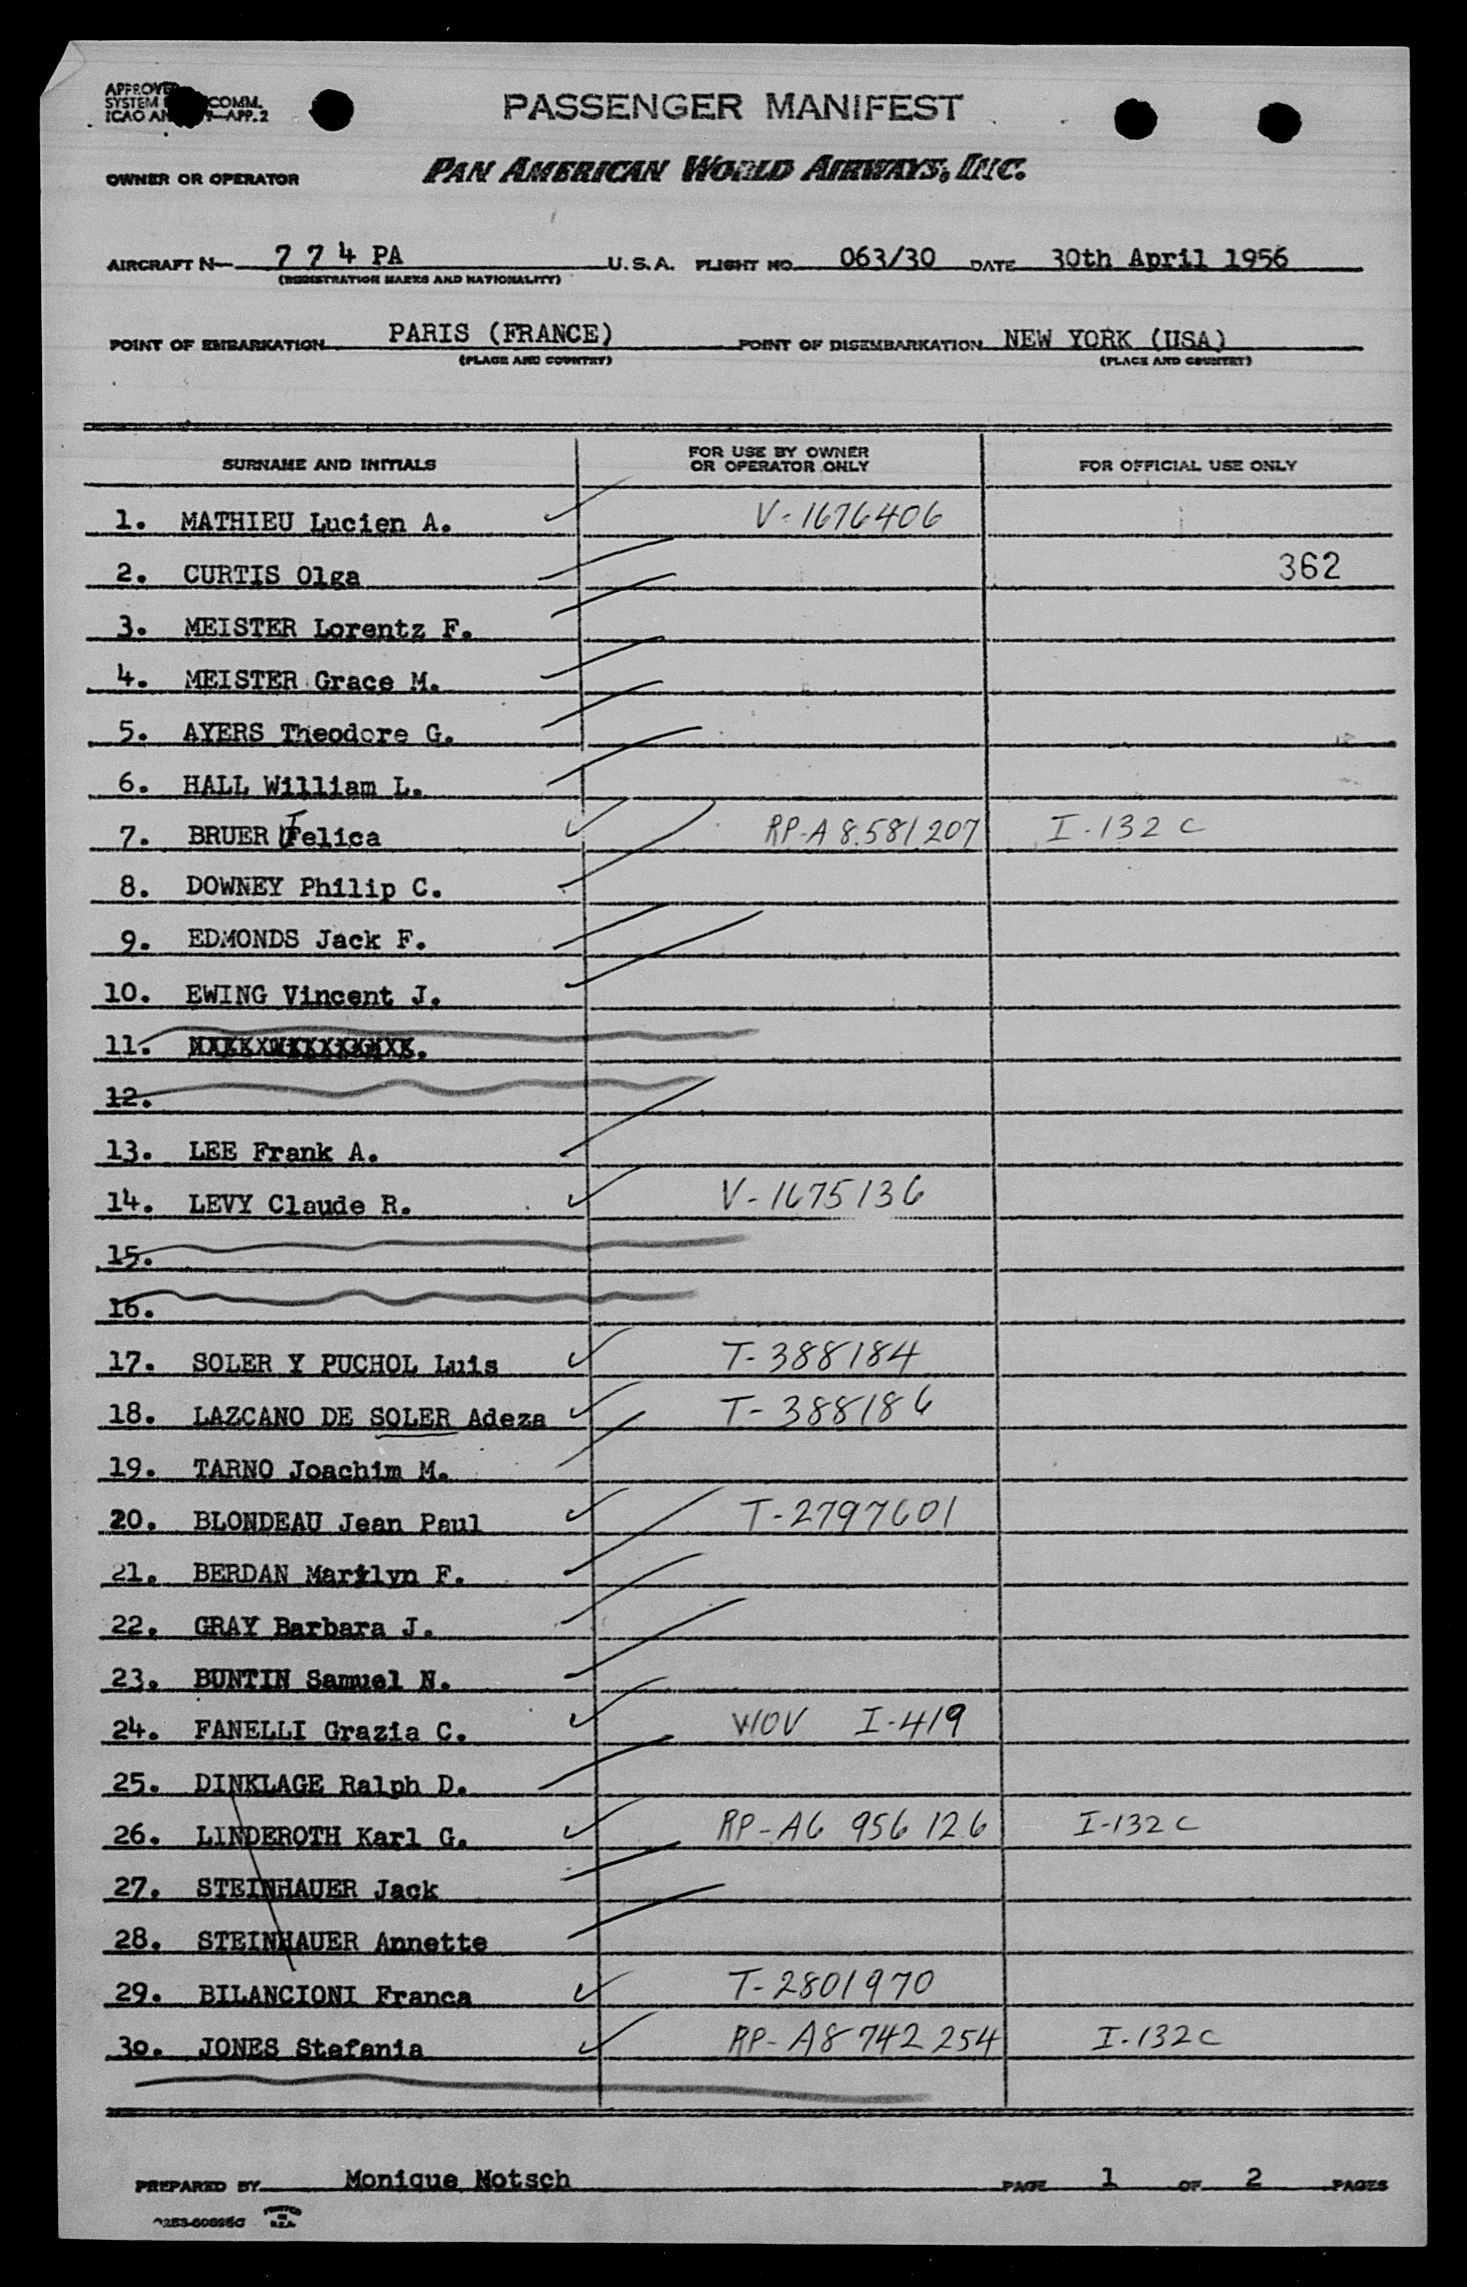 APPROVED COMM.
SYSTEM
ICAO AN 9—APP. 2
PASSENGER MANIFEST
OWNER OR OPERATOR PAN AMERICAN WORLD AIRWAYS, INC.
AIRCRAFT N— 7 7 4 PA U.S.A. FLIGHT NO. 063/30 DATE 30th April 1956
(REGISTRATION MARKS AND NATIONALITY)
POINT OF EMBARKATION PARIS (FRANCE) POINT OF DISEMBARKATION NEW YORK (USA)
(PLACE AND COUNTRY) (PLACE AND COUNTRY)
SURNAME AND INITIALS FOR USE BY OWNER OR OPERATOR ONLY FOR OFFICIAL USE ONLY
1. MATHIEU Lucien A. V-1676406
2. CURTIS Olga 362
3. MEISTER Lorentz F.
4. MEISTER Grace M.
5. AYERS Theodore G.
6. HALL William L.
7. BRUER Felica RP-A 8.581 207 I-132 C
8. DOWNEY Philip C.
9. EDMONDS Jack F.
10. EWING Vincent J.
11.
12.
13. LEE Frank A.
14. LEVY Claude R. V-1675136
15.
16.
17. SOLER Y PUCHOL Luis T-388184
18. LAZCANO DE SOLER Adeza T-388186
19. TARNO Joachim M.
20. BLONDEAU Jean Paul T-2797601
21. BERDAN Marilyn F.
22. GRAY Barbara J.
23. BUNTIN Samuel N.
24. FANELLI Grazia C. WOV I-419
25. DINKLAGE Ralph D.
26. LINDEROTH Karl G. RP-A6 956 126 I-132 C
27. STEINHAUER Jack
28. STEINHAUER Annette
29. BILANCIONI Franca T-2801970
30. JONES Stefania RP-A8 742 254 I-132C
PREPARED BY Monique Notsch PAGE 1 OF 2 PAGES
PRINTED IN U.S.A.